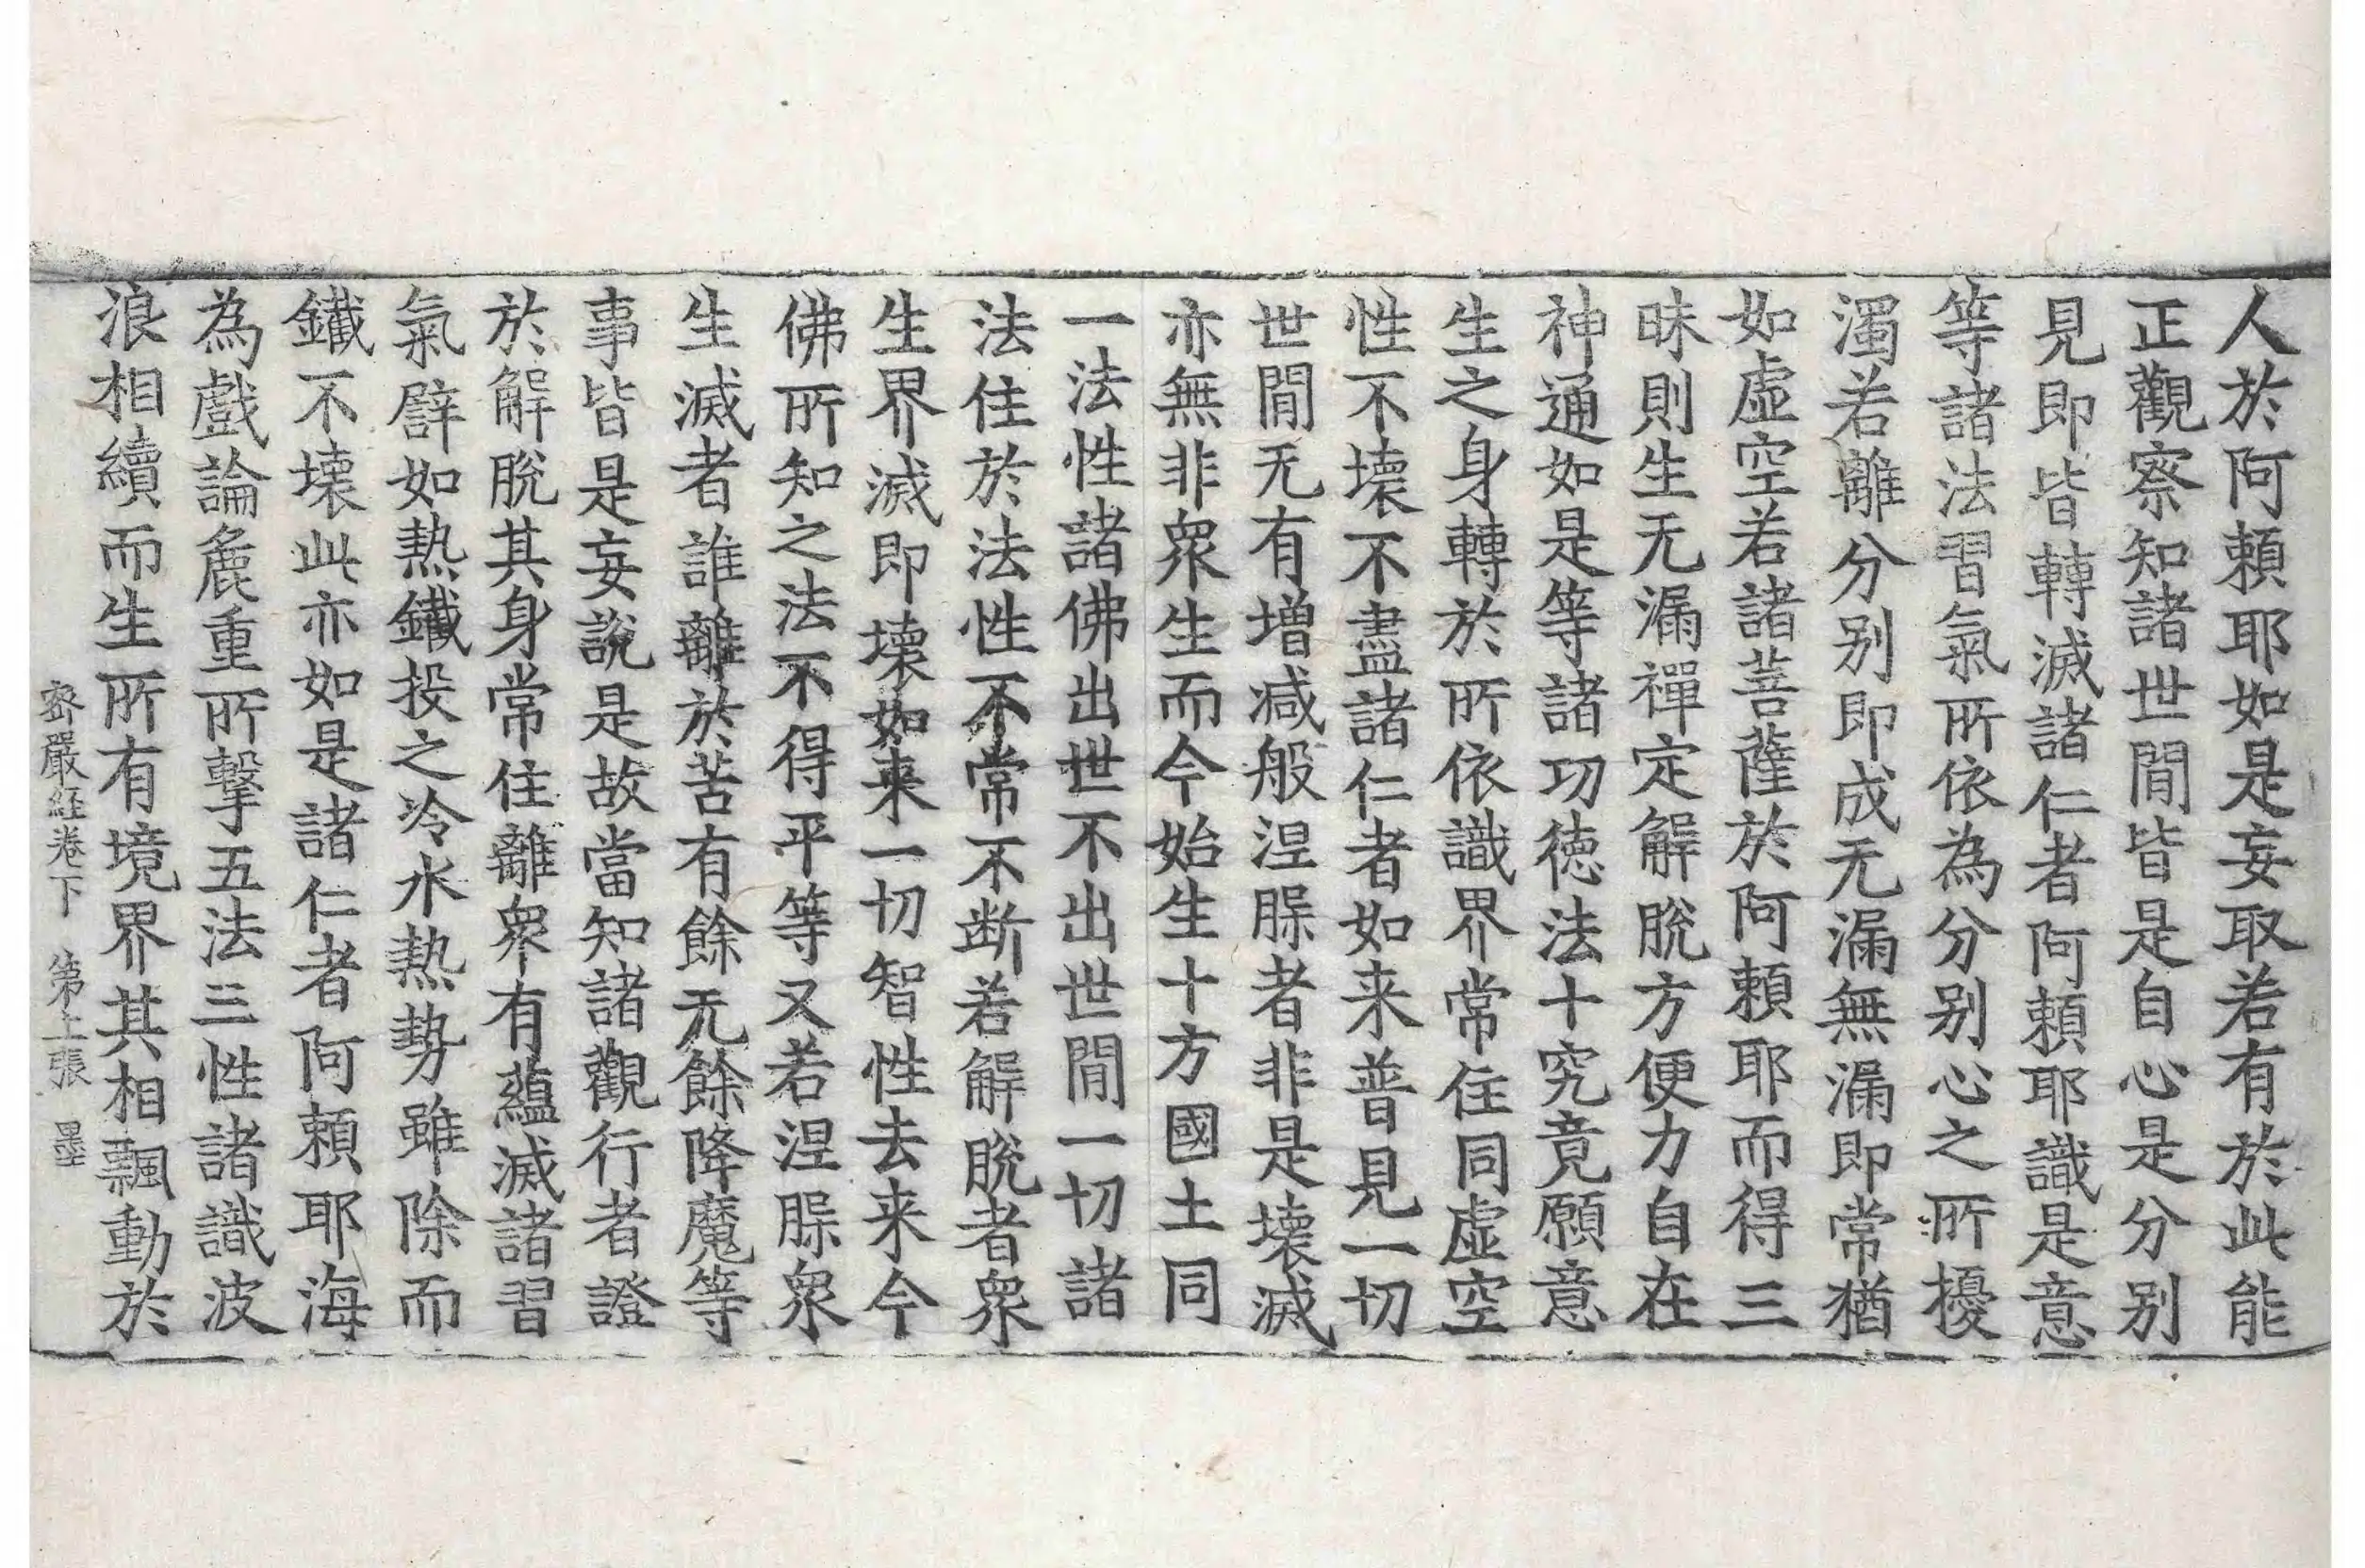 人於阿頼耶如是妄取若有於此能
正觀察知諸世間皆是自心是分别
見即皆轉滅諸仁者阿頼耶識是意
等諸法習氣所依為分别心之所擾
濁若離分别即成无漏無漏即常猶
如虛空若諸菩薩於阿頼耶而得三
昧則生无漏禪定解脫方便力自在
神通如是等諸功徳法十究竟願意
生之身轉於所依識界常住同虛空
性不壞不盡諸仁者如来普見一切
世間无有增减般涅槃者非是壞滅
亦無非衆生而今始生十方國土同
一法性諸佛出世不出世間一切諸
法住於法性不常不断若解脫者衆
生界滅即壞如来一切智性去来今
佛所知之法不得平等又若涅槃衆
生滅者誰離於苦有餘无餘降魔等
事皆是妄說是故當知諸觀行者證
於解脫其身常住離衆有蘊滅諸習
氣譬如熱鐵投之冷水熱勢雖除而
鐵不壞此亦如是諸仁者阿頼耶海
為戲論麁重所擊五法三性諸識波
浪相續而生所有境界其相飄動於
密嚴経卷下 第上張 墨